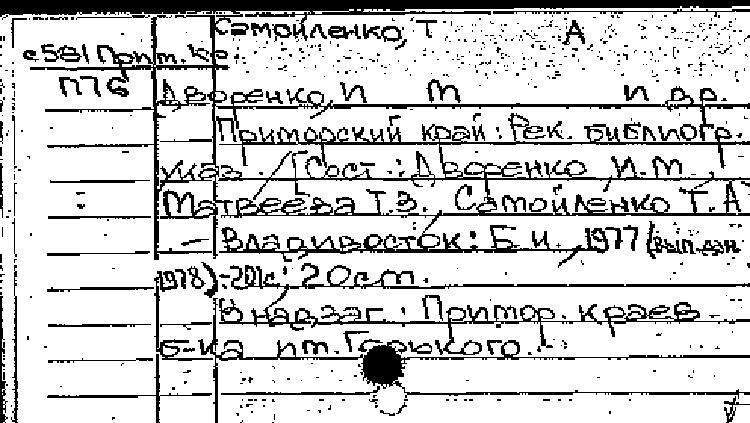 Самойленко, Т А
с581 Прим. кр.
П76
Дворенко, И М и др.
Приморский край: Рек. библиогр.
указ. / Сост.: Дворенко И.М.,
Матвеева Т.В., Самойленко Т.А
.— Владивосток: Б.и., 1977 (вып. дан.
1978).-201с; 20см.
В надзаг.: Примор. краев.
б-ка им. Горького.